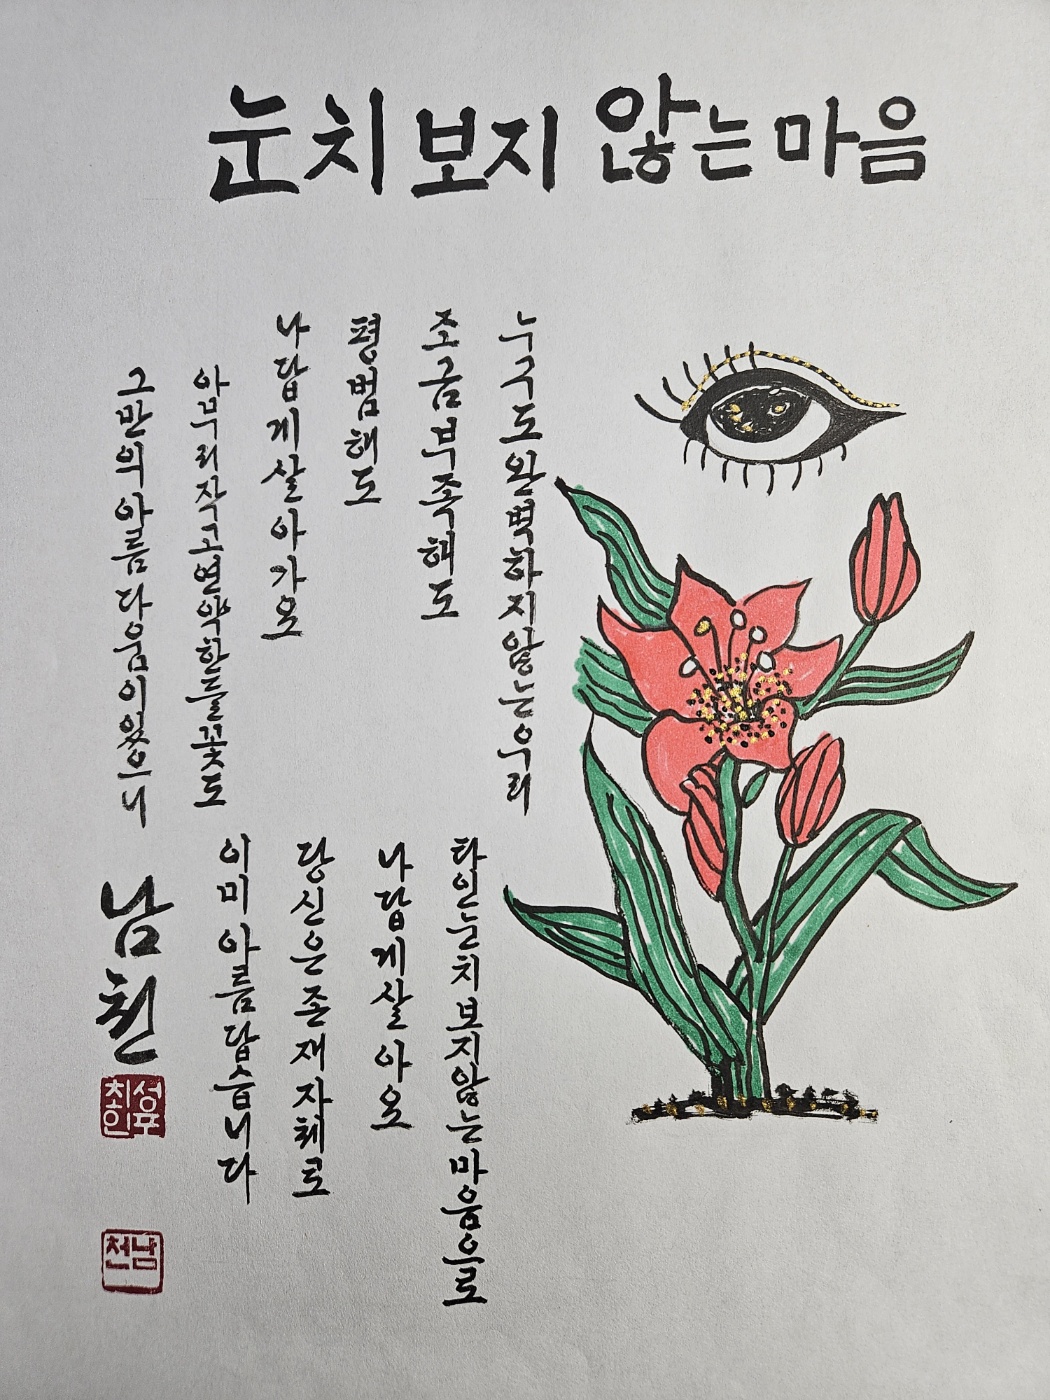 눈치 보지 않는 마음
누구도완벽하지않는우리
조금부족해도
평범해도
나답게살아가오
아무리작고연약한들꽃도
그만의아름다움이있으니
타인눈치보지않는마음으로
나답게살아오
당신은존재자체로
이미아름답습니다
남천
남천